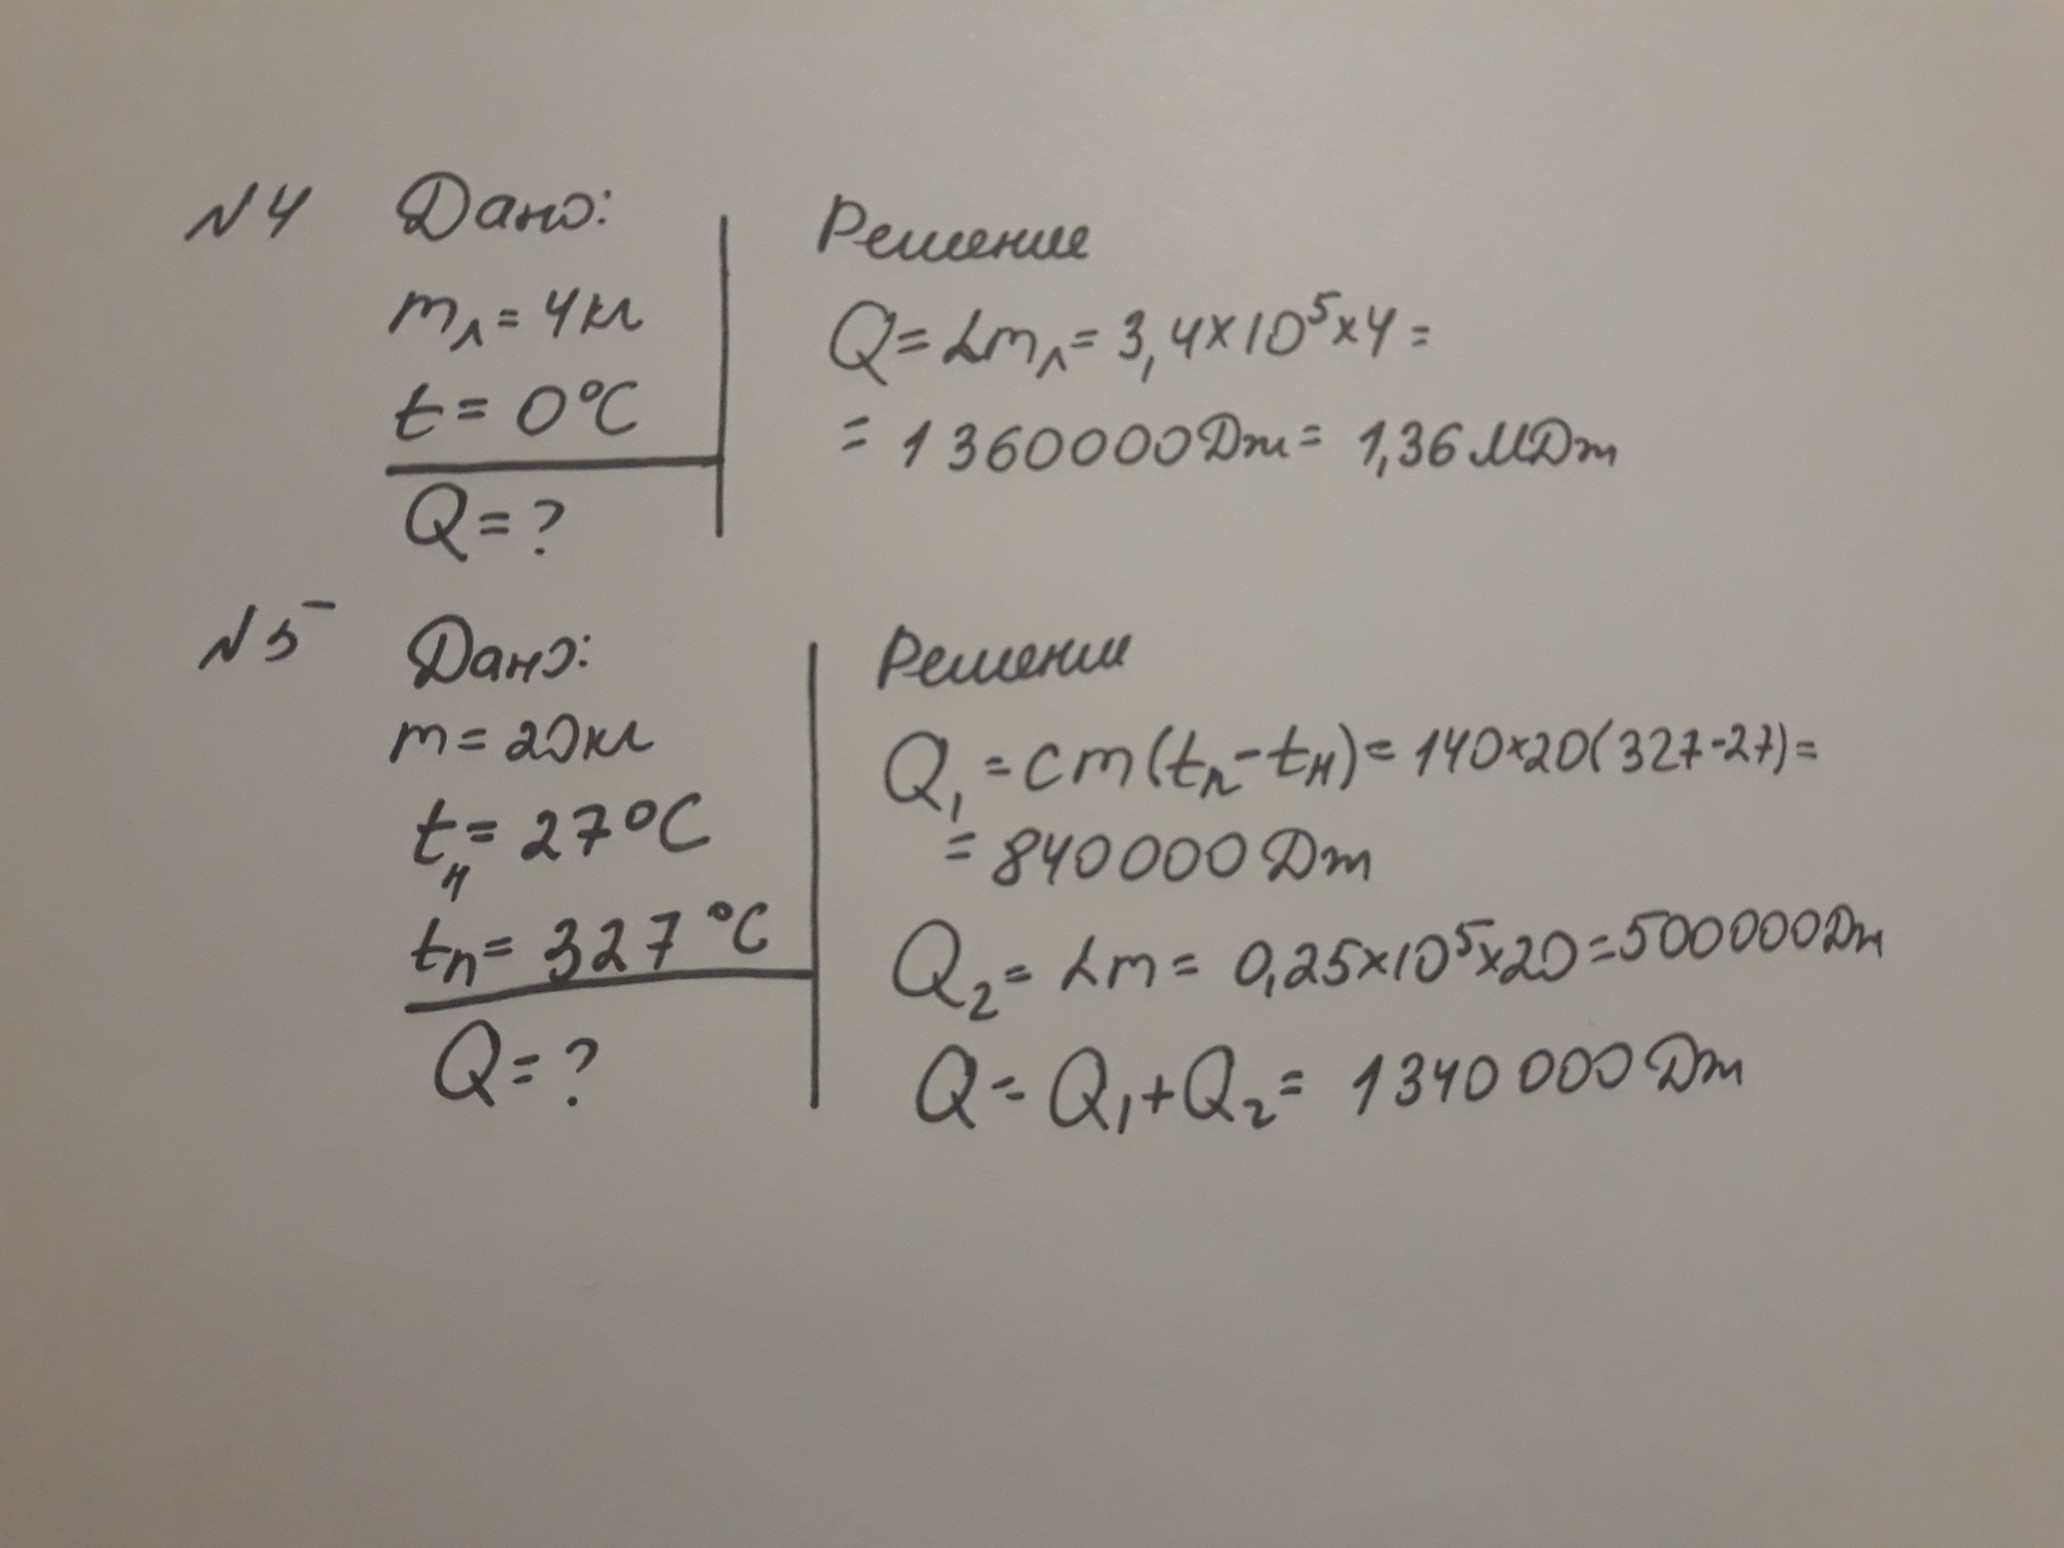 N4 Дано:
mл = 4кг
t = 0°C
Q = ?
Решение
Q = Lmл = 3,4×10⁵×4 =
= 1360000 Дж = 1,36 МДж
N5 Дано:
m = 20кг
tн = 27°C
tп = 327°C
Q = ?
Решение
Q₁ = cm(tп - tн) = 140×20(327-27) =
= 840000 Дж
Q₂ = Lm = 0,25×10⁵×20 = 500000 Дж
Q = Q₁ + Q₂ = 1340 000 Дж